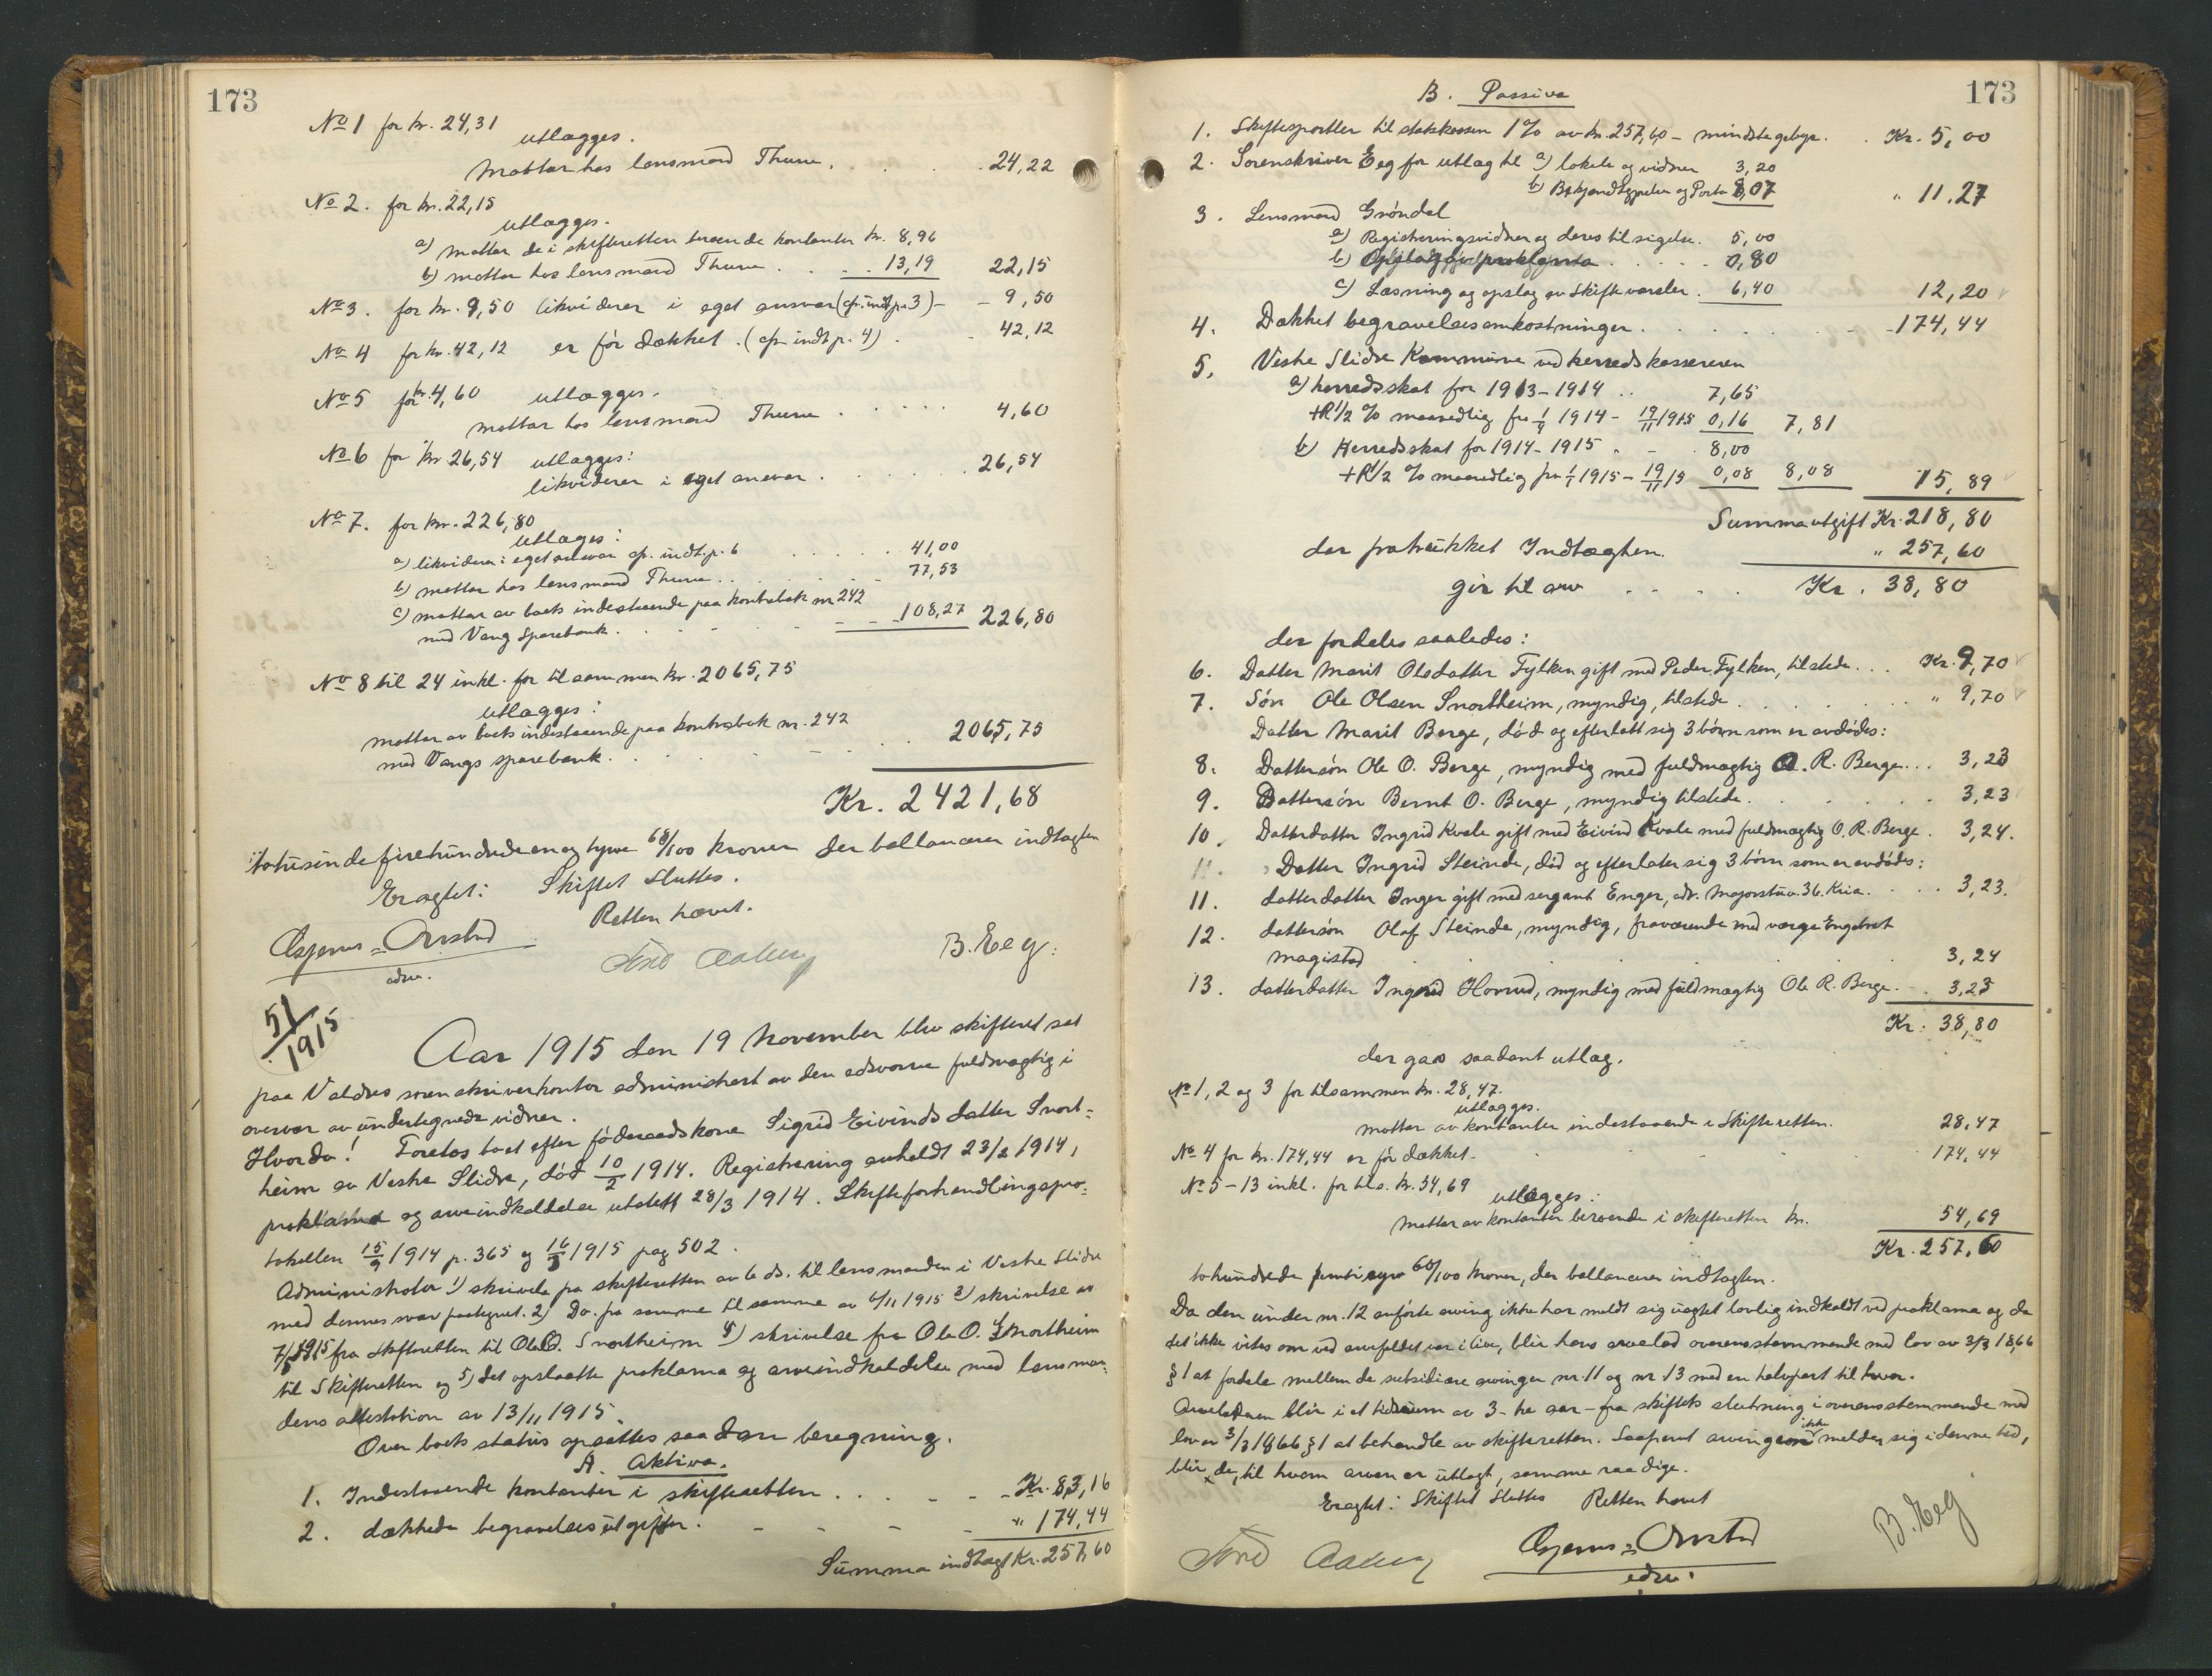 173
No 1 for kr. 24,31
utlægges.
Mottar hos lensmand Thune. 24,22
No 2. for kr. 22,15
utlægges.
a) mottar de i skifteretten beroende kontanter kr. 8,96
b) mottar hos lensmand Thune . . . 13,19 22,15
No 3. for kr. 9,50 likviderer i eget ansvar (cfr. indt. p. 3) - - 9,50
No 4 for kr. 42,12 er før dækket. (cfr. indt. p. 4) . . 42,12
No 5 for kr. 4,60 utlægges.
mottar hos lensmand Thune . . . . . 4,60
No 6 for kr. 26,54 utlægges:
likviderer i eget ansvar . . . . . 26,54
No 7. for kr. 226,80
utlæges:
a) likviderer i eget ansvar cfr. indt. p. 6 . . . . . 41,00
b) mottar hos lensmand Thune . . . . . 77,53
c) mottar av boets indestaaende paa kontrabok nr 242
med Vang Sparebank . . . . . 108,27 226,80
No 8 til 24 inkl. for tilsammen kr. 2065,75
utlægges:
mottar av boets indestaaende paa kontrabok nr. 242
med Vangs sparebank . . . . . 2065,75
Kr. 2421,68
totusindefirehundredeenogtyve 68/100 kroner der ballancerer indtægten
Eragtet: Skiftet sluttes.
Retten hævet.
B. Eeg.
edsv.
51/1915
Aar 1915 den 19 November blev skifteret sat
paa Valdres sorenskriverkontor administrert av den edsvorne fuldmægtig i
overvær av undertegnede vidner.
Hvorda! Foretos boet efter føderaadskone Sigrid Eivindsdatter Snort=
heim av Vestre Slidre, død 10/2 1914. Registrering avholdt 23/2 1914,
proklama og arveindkaldelse utstett 28/3 1914. Skifteforhandlingspro=
tokollen 15/9 1914 p. 365 og 16/3 1915 pag 502.
Administrator 1) skrivele fra skifteretten av 6 ds. til lensmanden i Vestre Slidre
med dennes svar paategnet. 2) Do. fra samme til samme av 6/11 1915 3) skrivelse av
7/8 1915 fra skifteretten til Ole O. Snortheim 4) skrivelse fra Ole O. Snortheim
til Skifteretten og 5) det opslaatte proklama og arveindkaldelse med lensman-
dens attestation av 13/11 1915.
Over boets status opsattes saadan beregning.
A. Aktiva.
1. Indestaaende kontanter i skifteretten . . . - - - Kr. 83,16
2. dækkede begravelsesutgifter. - - - - " 174,44
Summa indtægt Kr. 257,60
173
B. Passiva
1. Skiftesportler til statskassen 1% av kr. 257,60 - mindste gebyr. . Kr. 5,00
2. Sorenskriver Eeg for utlæg til a) lokale og vidner 3,20
b) Bekjendtgjørelse og Porto 8,07 " 11,27
3. Lensmand Grøndal
a) Registreringsvidner og deres tilsigelse. 5,00
b) Opslag av proklama . . . . . 0,80
c) Læsning og opslag av Skiftevarsler. 6,40 12,20
4. Dækket begravelsesomkostninger. . . . . - 174,44
5. Vestre Slidre Kommune ved herredskassereren
a) herredsskat for 1913-1914 . . 7,65
+R 1/2 % maanedlig fra 1/9 1914 - 19/11 1915 0,16 7,81
b) Herredsskat for 1914-1915 . - . 8,00
+R 1/2 % maanedlig fra 1/9 1915 - 19/11 15 0,08 8,08 15,89
Summa utgift Kr. 218,80
der fratrukket Indtægten. " 257,60
gir til arv . . . . Kr. 38,80
der fordeles saaledes:
6. Datter Marit Olsdatter Fylken gift med Peder Fylken, tilstede. . . Kr. 9,70
7. Søn Ole Olsen Snortheim, myndig, tilstede . . . . . " 9,70
Datter Marit Berge, død og efterlatt sig 3 børn som er avdødes:
8. Dattersøn Ole O. Berge, myndig med fuldmægtig O. R. Berge . . . 3,23
9. Dattersøn Bernt O. Berge, myndig tilstede. . . . . . 3,23
10. Datterdatter Ingrid Kvale gift med Eivind Kvale med fuldmægtig O. R. Berge . 3,24.
11. Datter Ingrid Steinde, død og efterlater sig 3 børn som er avdødes:
11. datterdatter Inger gift med sergant Enger, adr. Majorstuv. 36. Kria. . . . 3,23.
12. dattersøn Olaf Steinde, myndig, fraværende med værge Engebret
Magistad . . . . . 3,24
13. datterdatter Ingrid Hovrud, myndig med fuldmægtig Ole R. Berge. . . 3,23
Kr. 38,80
der gaves saadant utlæg.
No 1, 2 og 3 for tilsammen kr. 28,47.
utlægges.
mottar av kontanter indestaaende i Skifteretten. 28,47
No 4 for kr. 174,44 er før dækket. . . . . 174,44
No 5-13 inkl. for tils. kr. 54,69
utlægges:
mottar av kontanter beroende i skifteretten kr. 54,69
Kr. 257,60
tohundrede femti syv 60/100 kroner, der ballancerer indtægten.
Da den under nr. 12 anførte arving ikke har meldt sig uagtet lovlig indkaldt ved proklama og da
det ikke vites om ved arvefaldet var i live, blir hans arvelod overensstemmende med lov av 3/3 1866
§ 1 at fordele mellem de subsidiære arvinger nr. 11 og nr. 13 med en halvpart til hver.
Arvelodden blir i et tidsrum av 3 - tre aar - fra skiftets slutning i overensstemmende med
lov av 3/3 1866 § 1 at behandle av skifteretten. Saafremt arvingen ikke melder sig i denne tid,
blir de, til hvem arven er utlagt, samme raadige.
Eragtet: Skiftet sluttes Retten hævet
B. Eeg
edsv.